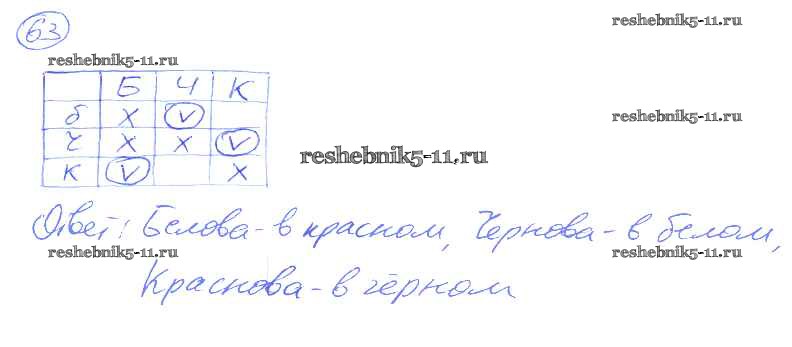 63
reshebnik5-11.ru
reshebnik5-11.ru
Б Ч К
б X V
reshebnik5-11.ru
ч X X V
reshebnik5-11.ru
к V X
Ответ: Белова - в красном, Чернова - в белом,
reshebnik5-11.ru
reshebnik5-11.ru
Краснова - в чёрном